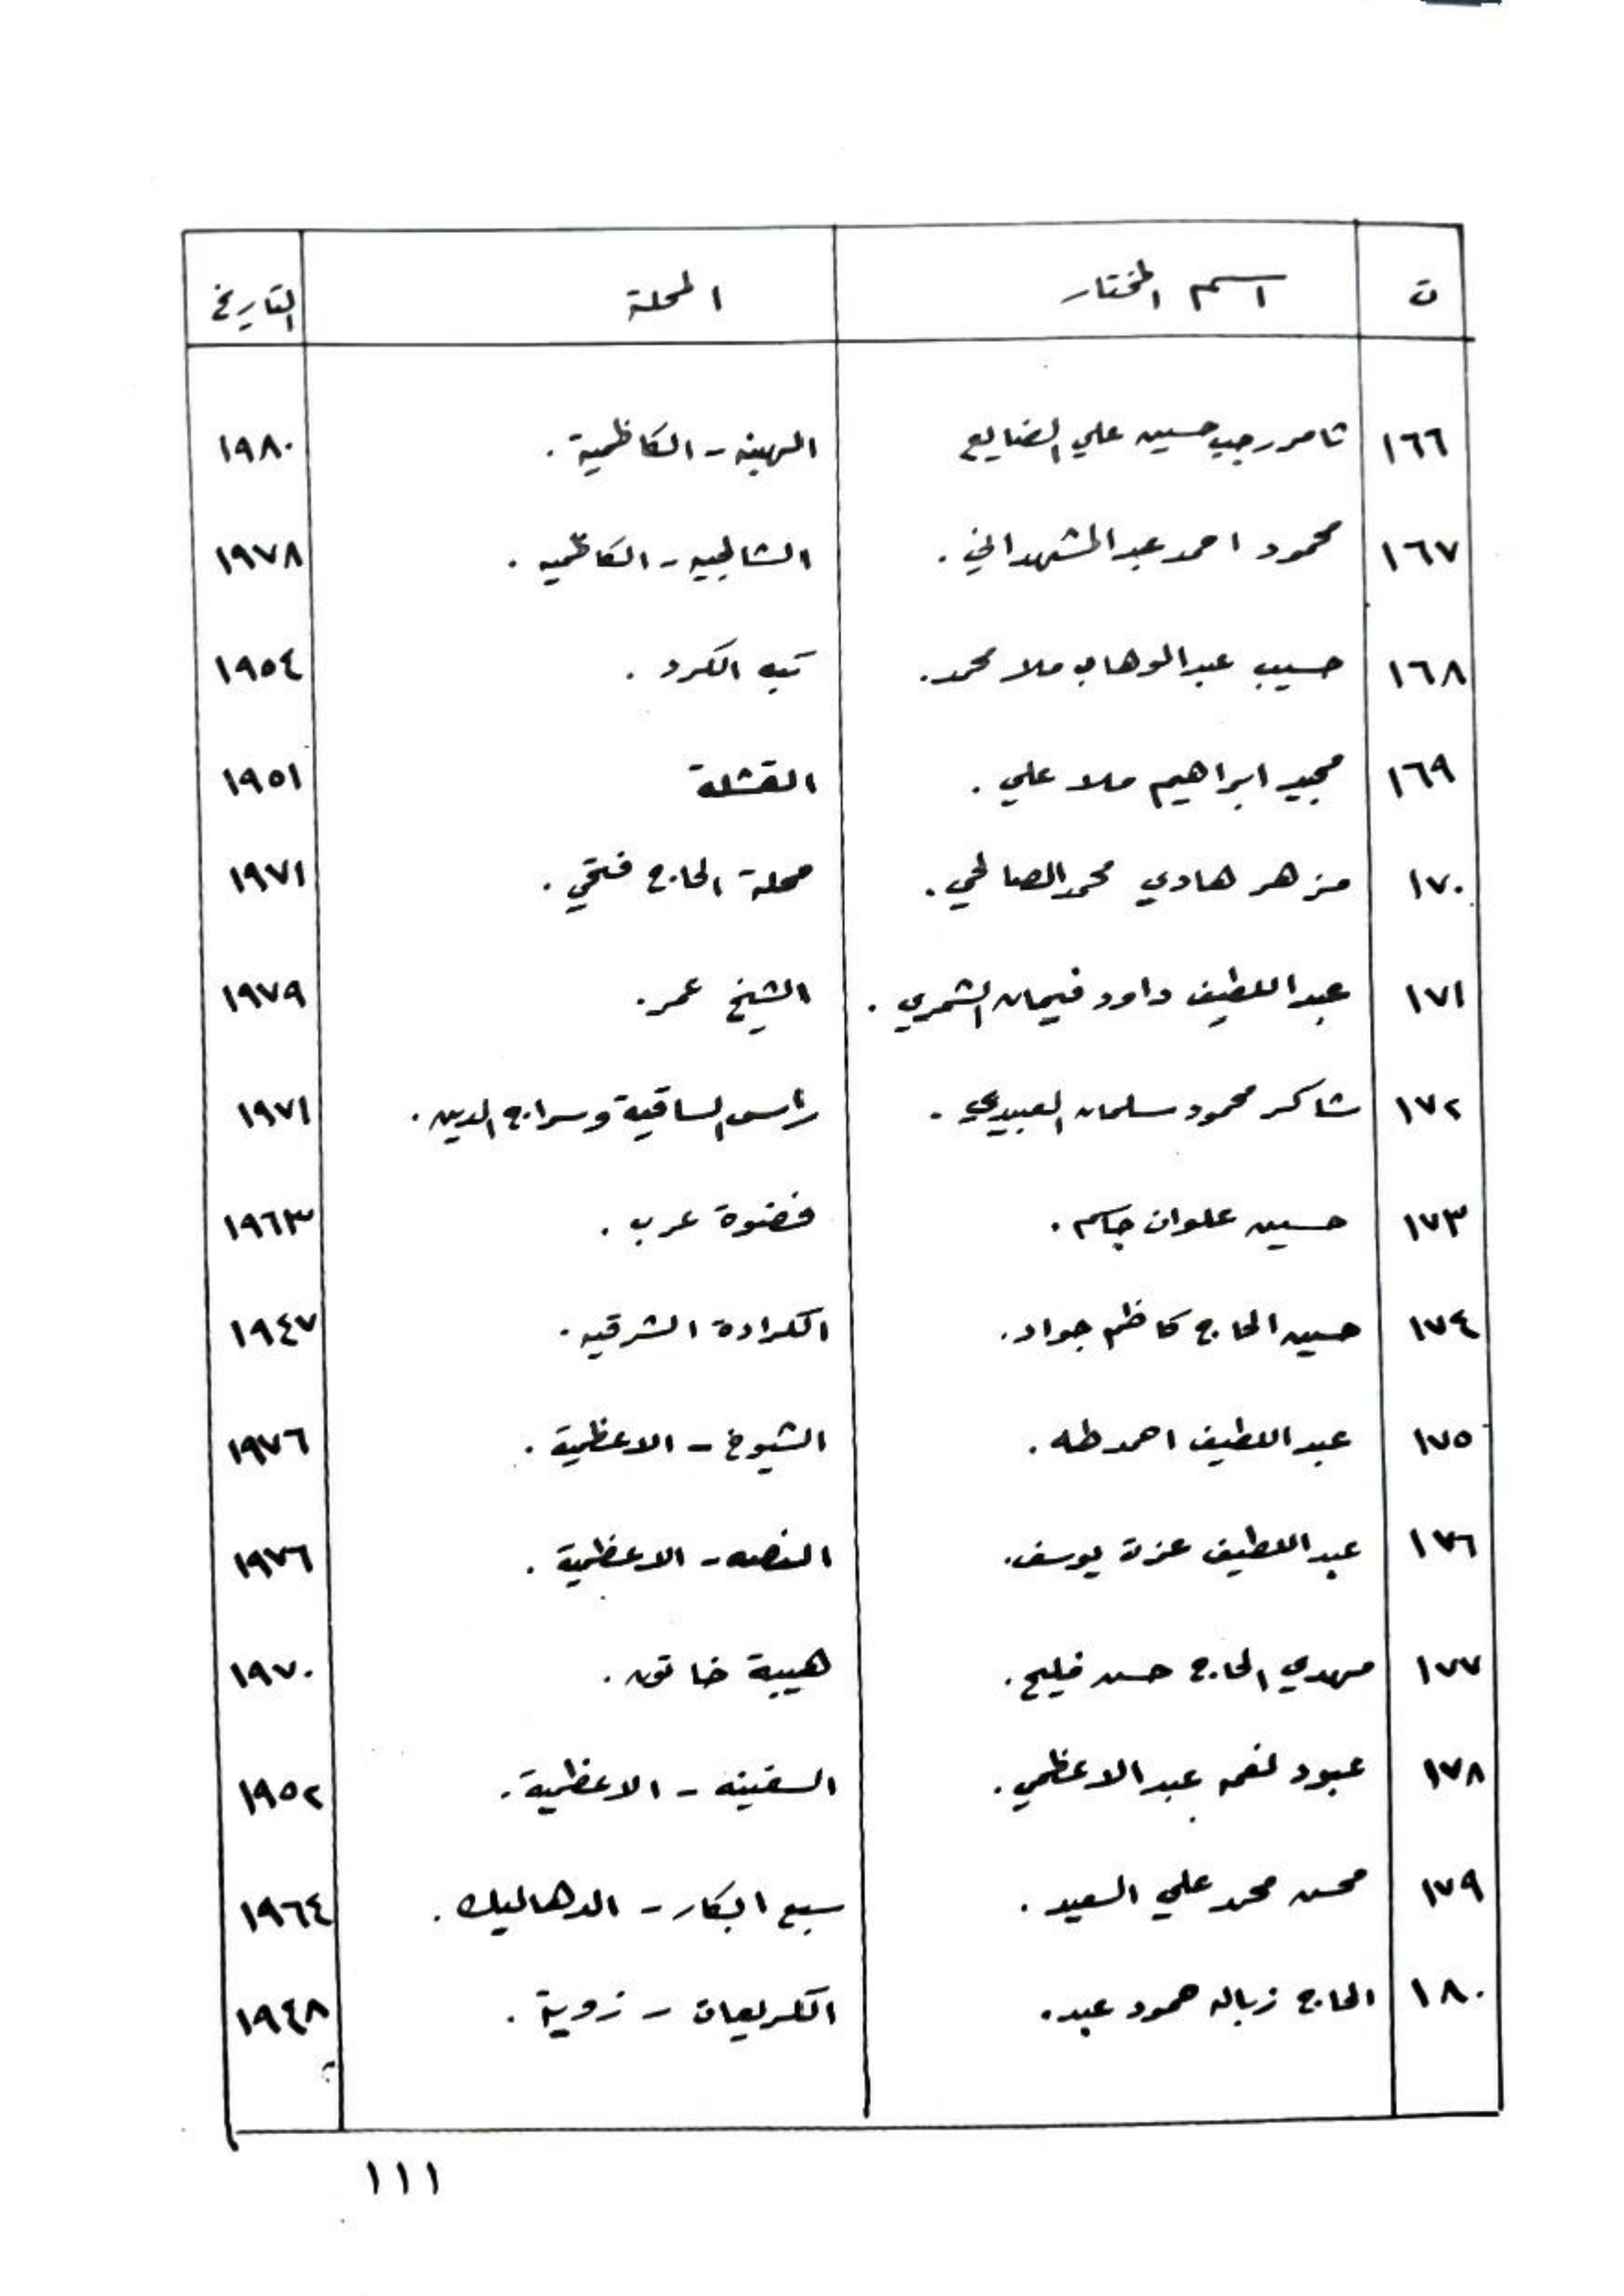 ت اسم المختار المحلة التاريخ
١٦٦ ثامر رجب حسين علي الضايع الهبنه - الكاظمية . ١٩٨٠
١٦٧ محمود احمد عبد المشهداني . الشالجيه - الكاظميه . ١٩٧٨
١٦٨ حسيب عبد الوهاب ملا محمد . تبه الكرد . ١٩٥٤
١٦٩ مجيد ابراهيم ملا علي . القشلة ١٩٥١
١٧٠ مزهر هادي محمد الصالحي . محلة الحاج فتحي . ١٩٧١
١٧١ عبد اللطيف داود الشمري . الشيخ عمر . ١٩٧٩
١٧٢ شاكر محمود سلمان العبيدي . راس الساقية وسراج الدين . ١٩٧١
١٧٣ حسين علوان جاسم . فضوة عرب . ١٩٦٣
١٧٤ حسين الحاج كاظم جواد . الكرادة الشرقيه . ١٩٤٧
١٧٥ عبد اللطيف احمد طه . الشيوخ - الاعظمية . ١٩٧٦
١٧٦ عبد اللطيف عزت يوسف . النصه - الاعظمية . ١٩٧٦
١٧٧ مهدي الحاج حسن فليح . هيبة خاتون . ١٩٧٠
١٧٨ عبود نعمه عبد الاعظمي . السفينه - الاعظمية . ١٩٥٢
١٧٩ محسن محمد علي السعيد . سبع ابكار - الدهاليك . ١٩٦٤
١٨٠ الحاج زباله حمود عبد . الكريعات - زوية . ١٩٤٨
١١١